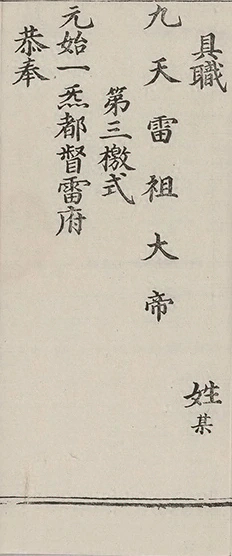 具職 姓某
九天雷祖大帝
第三檄式
元始一炁都督雷府
恭奉